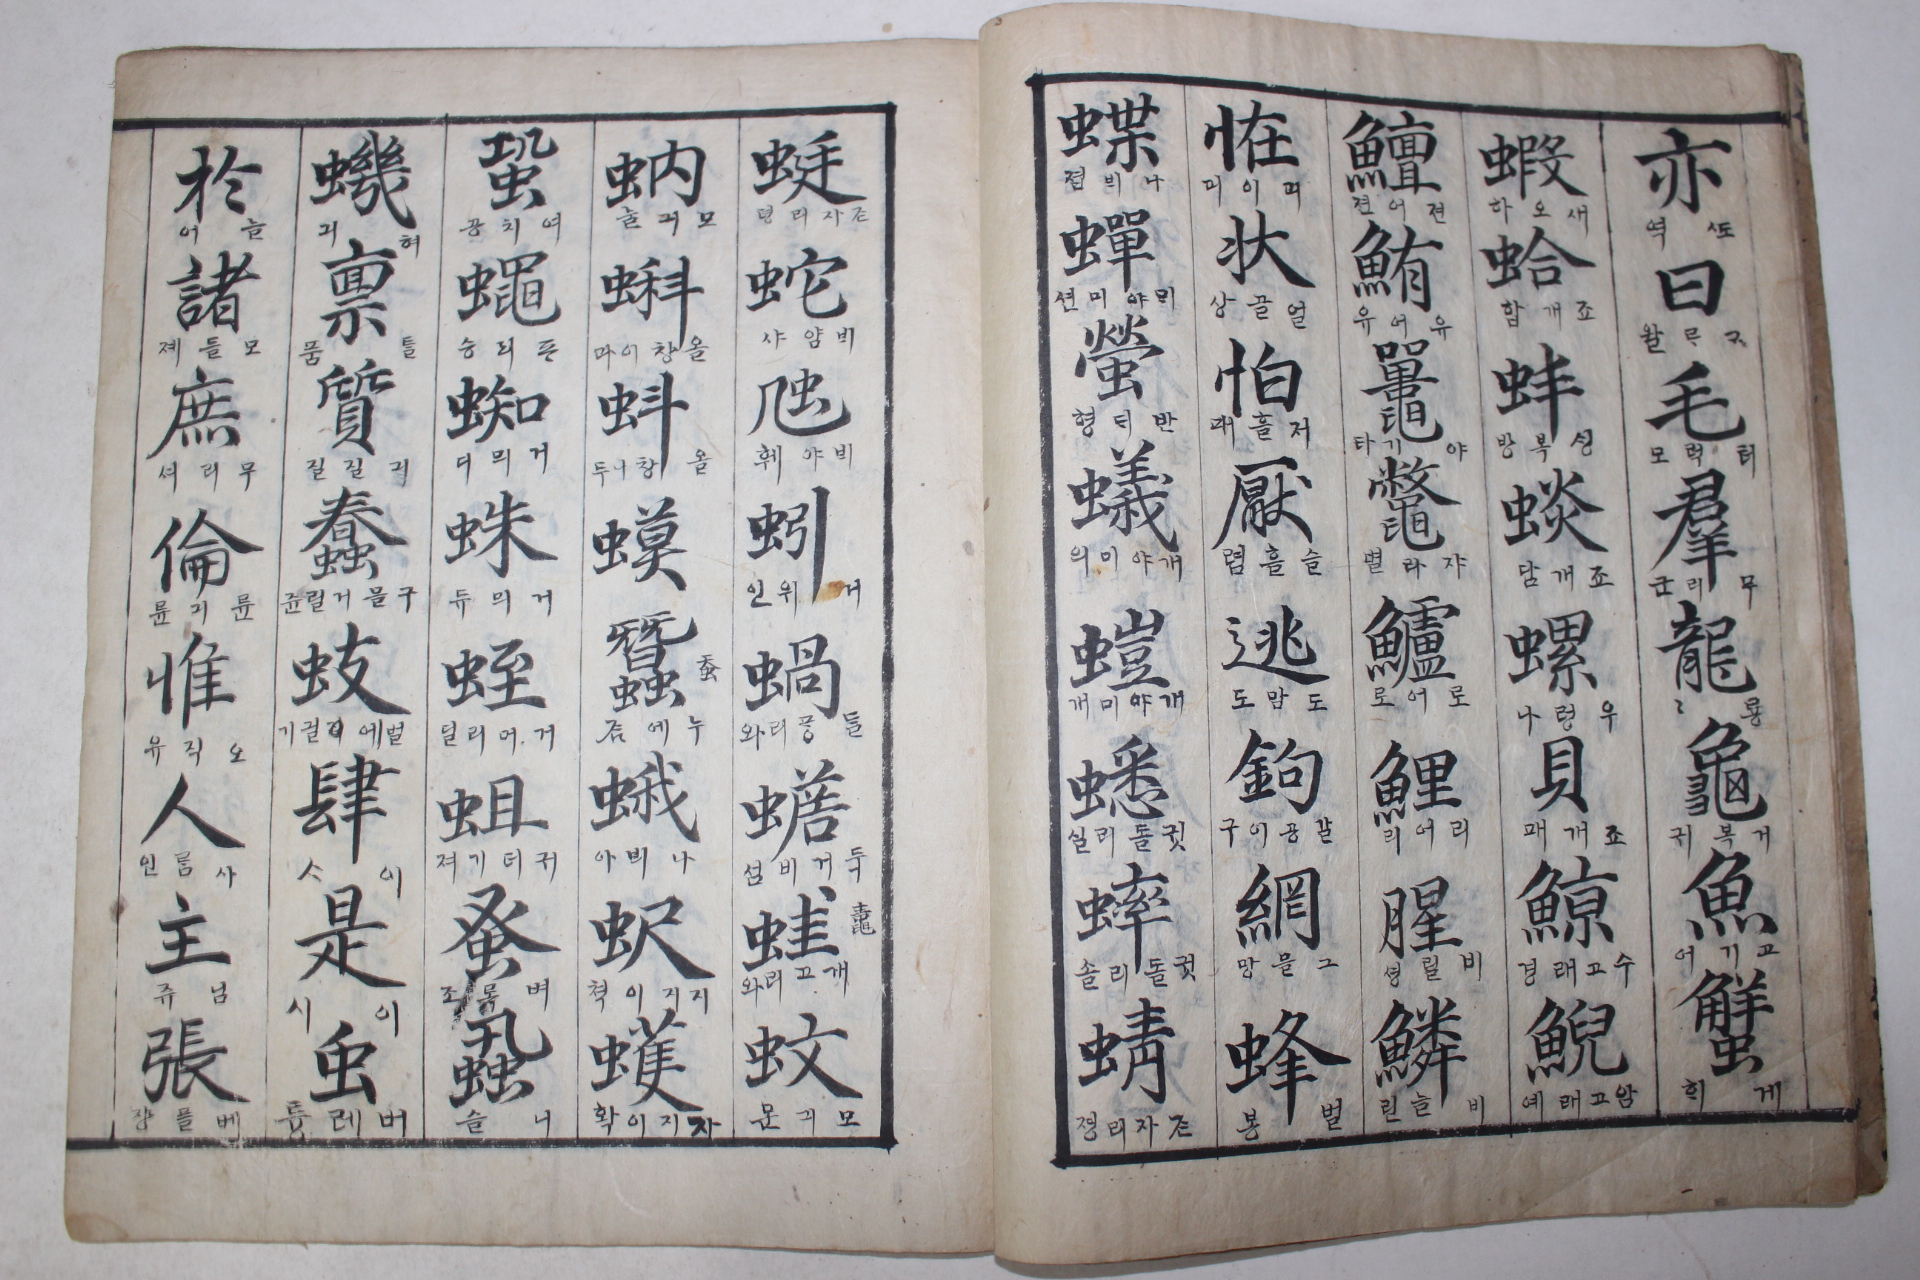 亦 또역 曰 왈 毛 터럭모 羣 무리군 龍 룡 龜 거복귀 魚 고기어 蟹 게희
蝦 새오하 蛤 죠개합 蚌 방 죠개담 螺 우렁나 貝 죠개패 鯨 수고래경 鯢 암고래예
鱣 젼어젼 鮪 유어유 鼉 야기타 鼈 쟈라별 鱸 로어로 鯉 리어리 腥 비릴셩 鱗 비늘린
恠 状 얼골상 怕 저흘패 厭 슬흘렴 逃 도맘도 鉤 갈공이구 網 그믈망 蜂 벌봉
蝶 나븨졉 蟬 믜야미션 螢 반디형 蟻 개야미의 螘 개야미개 蟋 귓돌리실 蟀 귓돌리솔 蜻 존자리졍
蜓 존자리뎐 蛇 비얌샤 虺 비야훼 蚓 거위인 蝸 들퐁리와 蟾 두거비섬 蛙 鼃 개고리와 蚊 모긔문
蚋 모긔늘 蝌 올창이과 蚪 올창니두 蟆 蠶 蚕 누에즘 蛾 나븨아 蚇 지지이쳑 蠖 자지이확
蛩 여치공 蠅 프리승 蜘 거믜디 蛛 거믜듀 蛭 거머리딜 蛆 귀더기져 蚤 벼록조 蝨 니슬
蟣 혀긔 稟 틀품 質 긔질질 蠢 구믈거릴쥰 蚑 벌에 기 肆 이 是 이시 虫 버레튱
於 늘어 諸 모들졔 庶 무리셔 倫 륜긔륜 惟 오직유 人 사름인 主 님쥬 張 베플쟝